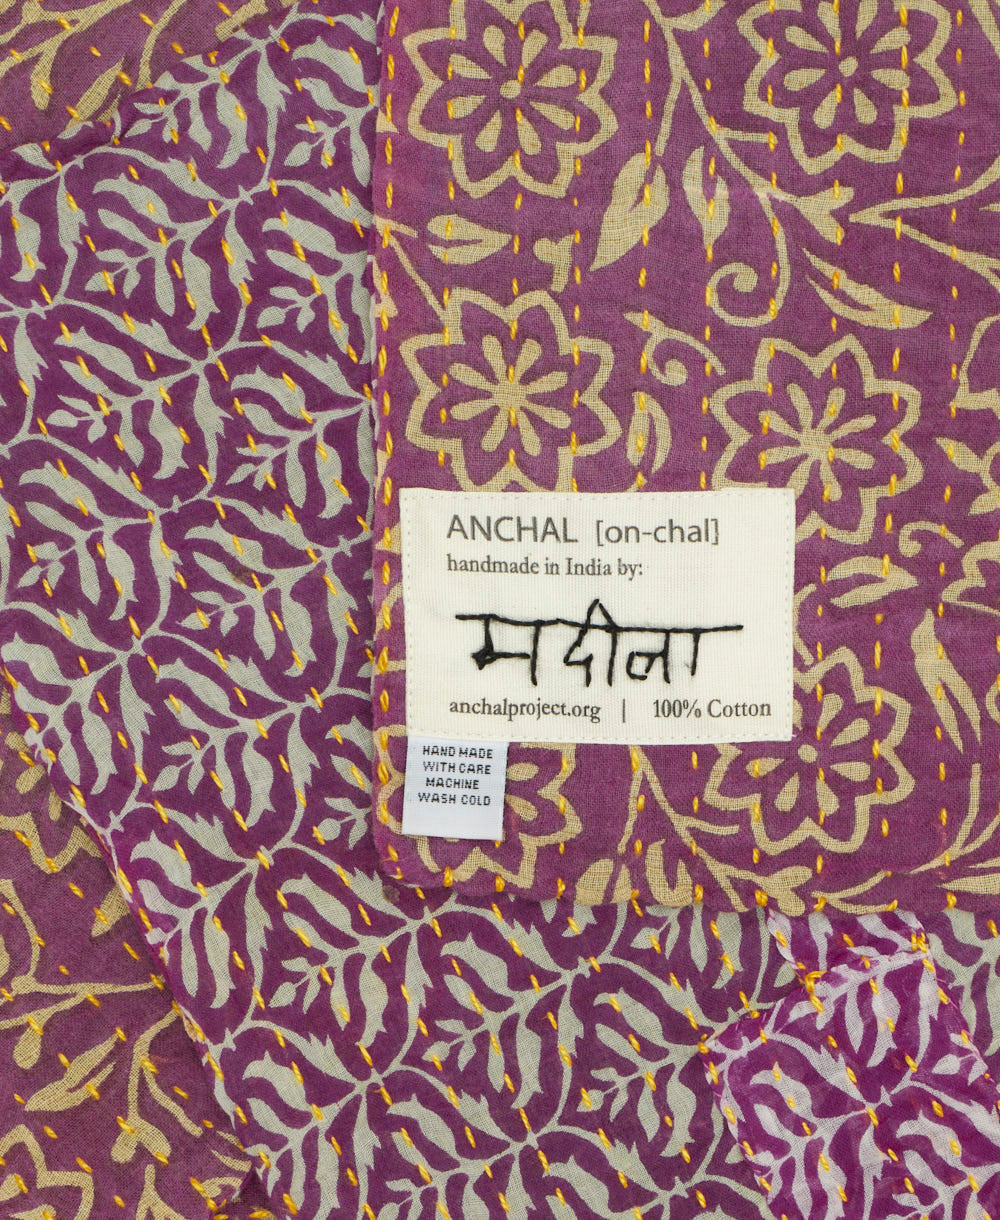 ANCHAL [on-chal]
handmade in India by:
मदीना
anchalproject.org | 100% Cotton
HAND MADE
WITH CARE
MACHINE
WASH COLD